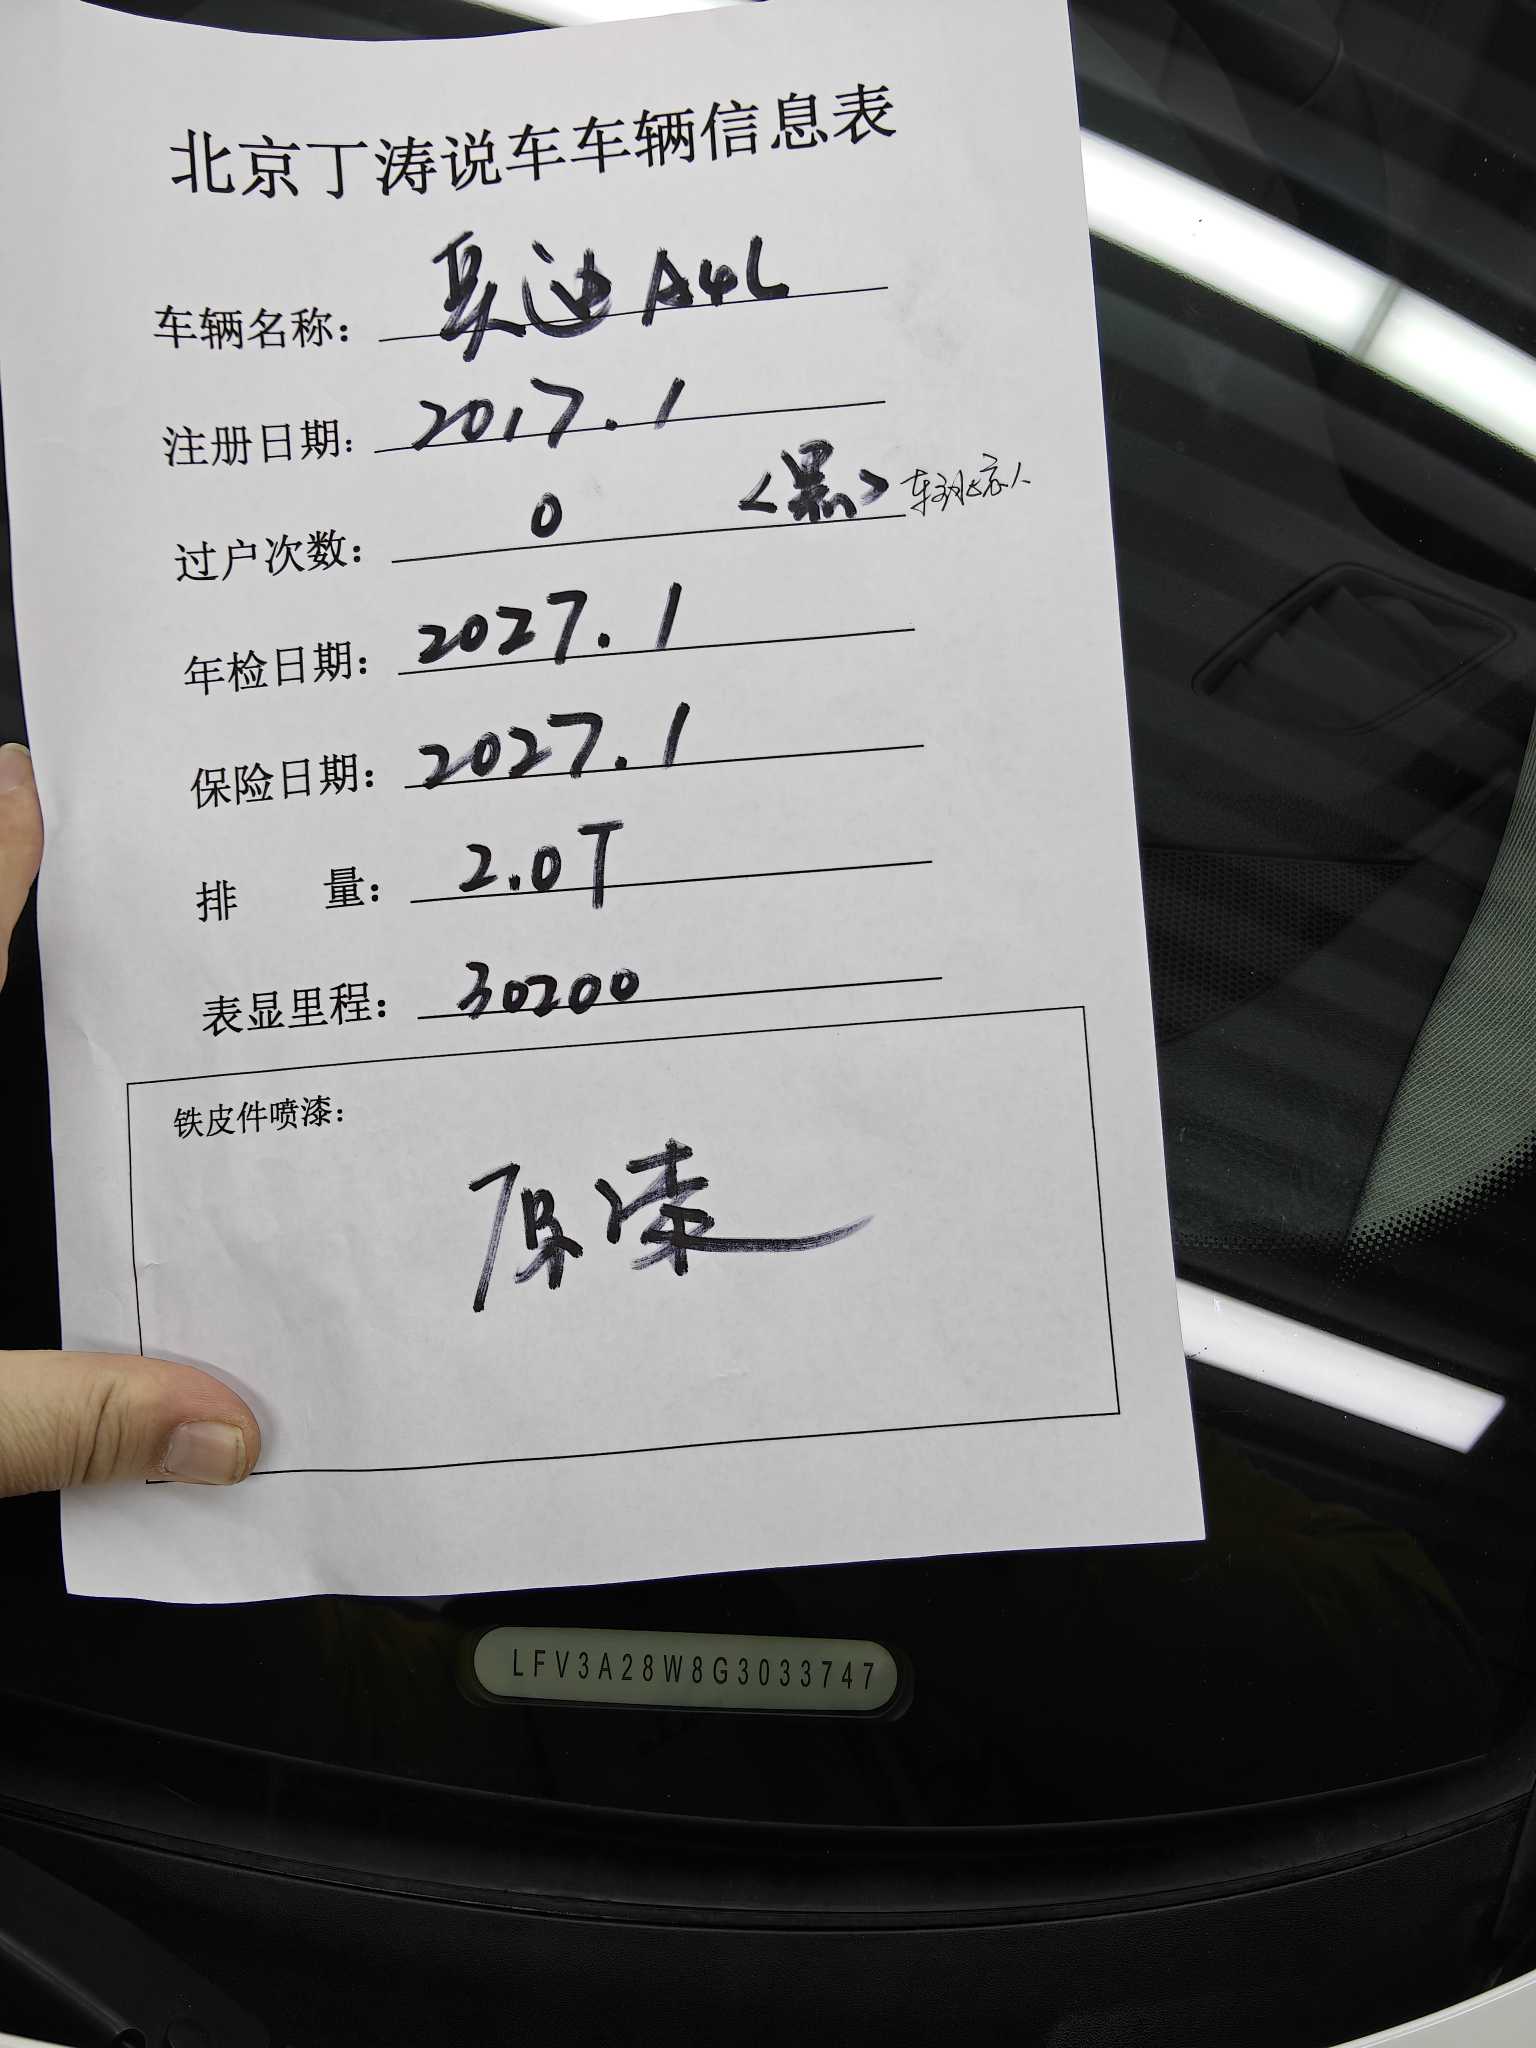 北京丁涛说车车辆信息表
车辆名称：奥迪A4L
注册日期：2017.1
过户次数：0 <黑>
年检日期：2027.1
保险日期：2027.1
排 量：2.0T
表显里程：30200
铁皮件喷漆：
原漆
LFV3A28W8G3033747